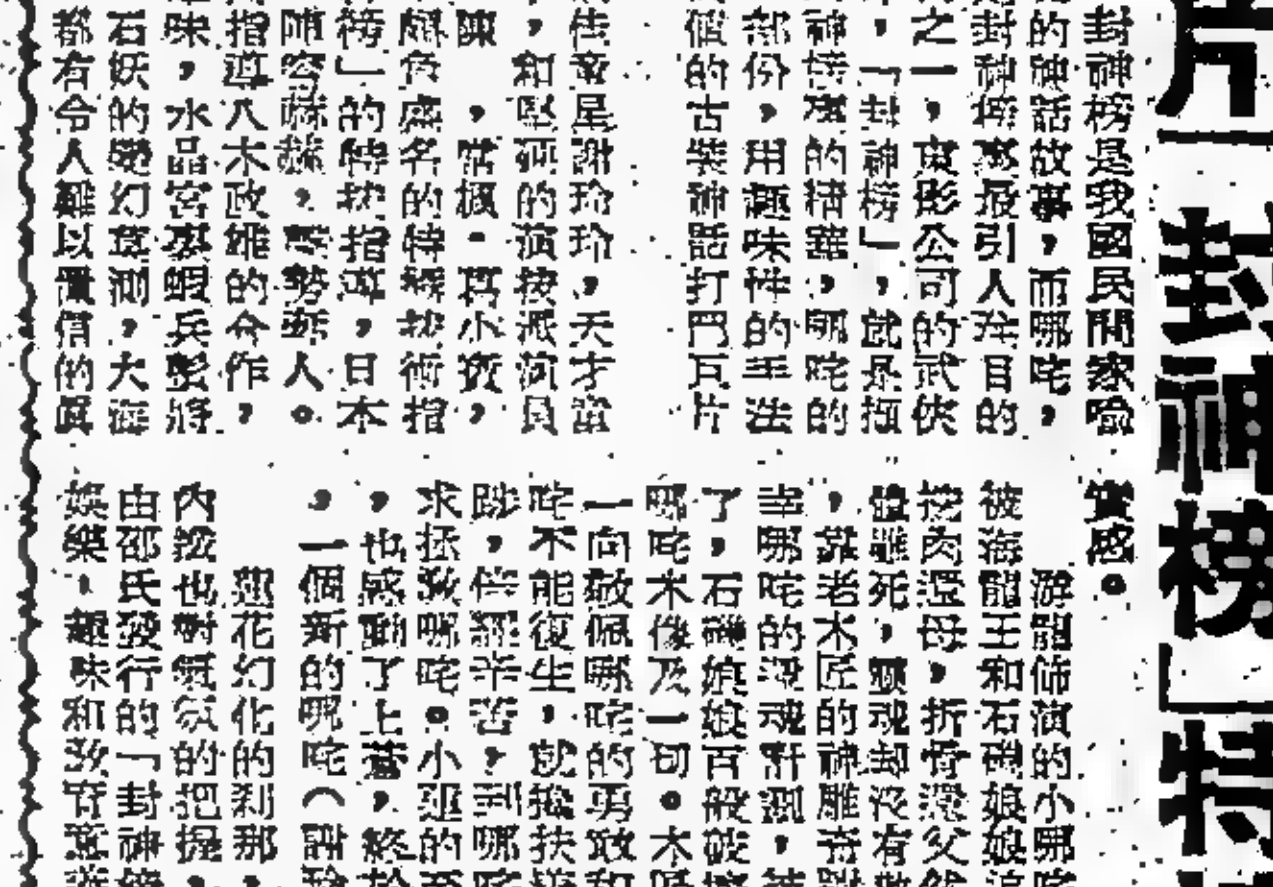 片「封神榜」特
封神榜是我國民間家喻
的神話故事，而哪咤，
封神傳裏最引人注目的
之一，東影公司的武俠
，「封神榜」，就是
神榜裏的精華，哪咤的
部份，用趣味性的手法
個的古裝神話打鬥瓦片
佳童星謝玲玲，天才童
，和堅強的演技派演員
陳　，常楓，葛小寶，
盛名的特殊技術指
榜」的特技指導，日本
陣容赫赫，聲勢奪人。
指導八木政雄的合作，
味，水晶宮裏蝦兵蟹將
石妖的變幻莫測，大海
都有令人難以置信的眞
實感。
游龍飾演的小哪
被海龍王和石磯娘娘
挖肉還母，折骨還父
體雖死，靈魂却沒有
，靠老木匠的神雕奇
幸哪咤的靈魂
了，石磯娘娘百般破
哪咤木像及一切。木
一向敬佩哪咤的勇敢和
咤不能復生，就攙扶
，倍經辛苦，到哪
求拯救哪咤。小的
，也感動了上蒼，終於
，一個新的哪咤（謝玲
蓮花幻化的刹那，
內政也對氣氛的把握，
由邵氏發行的「封神
娛樂，趣味和敎育意